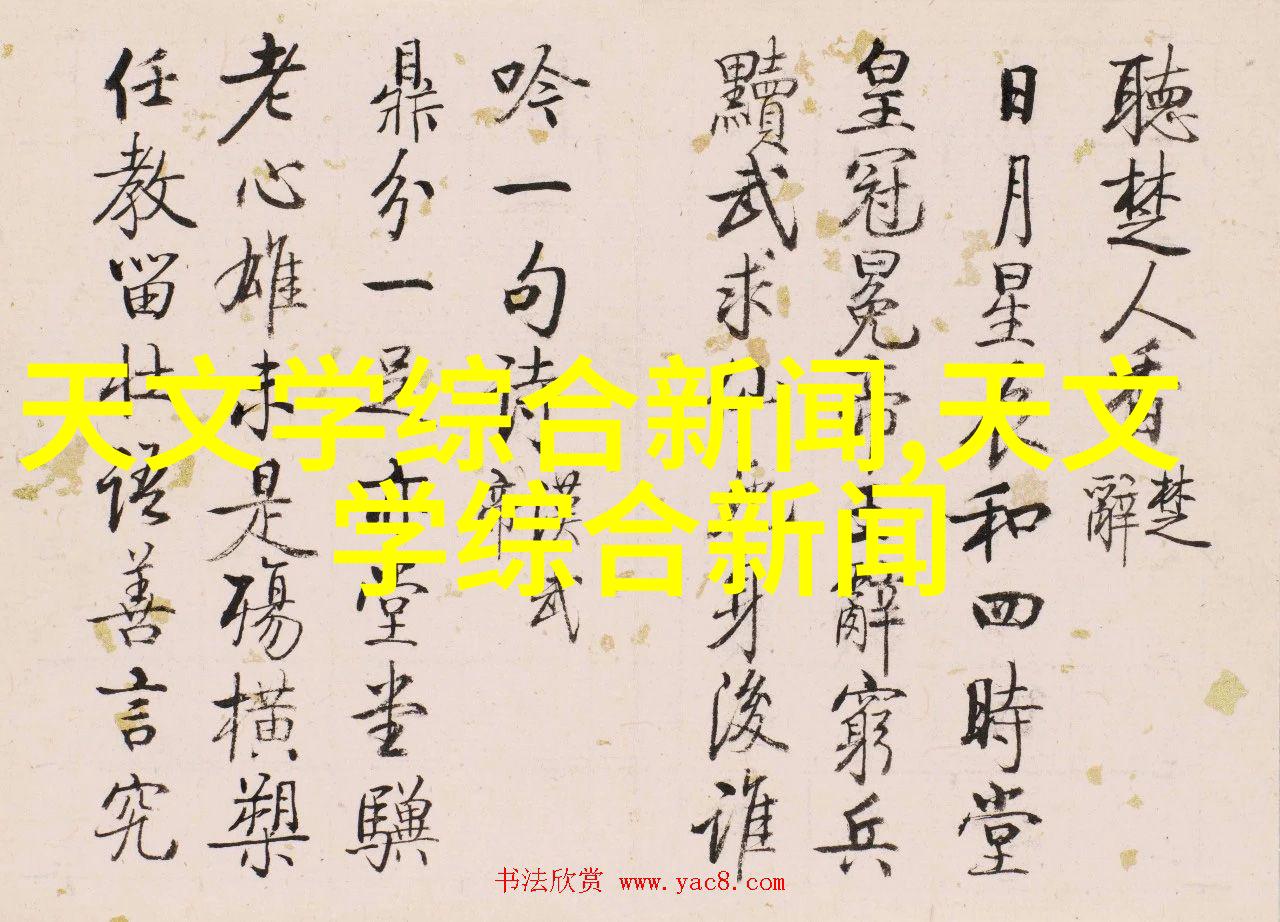 聽楚人看楚辭
日月星辰和四時堂
皇冠冕帝辭窮兵
黷武求身後誰
吟一句詩漢武
鼎分一足亦堂堂驥
老心雄未是殤橫槊
任教留壯語善言究
天文学综合新闻,天文
学综合新闻
书法欣赏 www.yac8.com